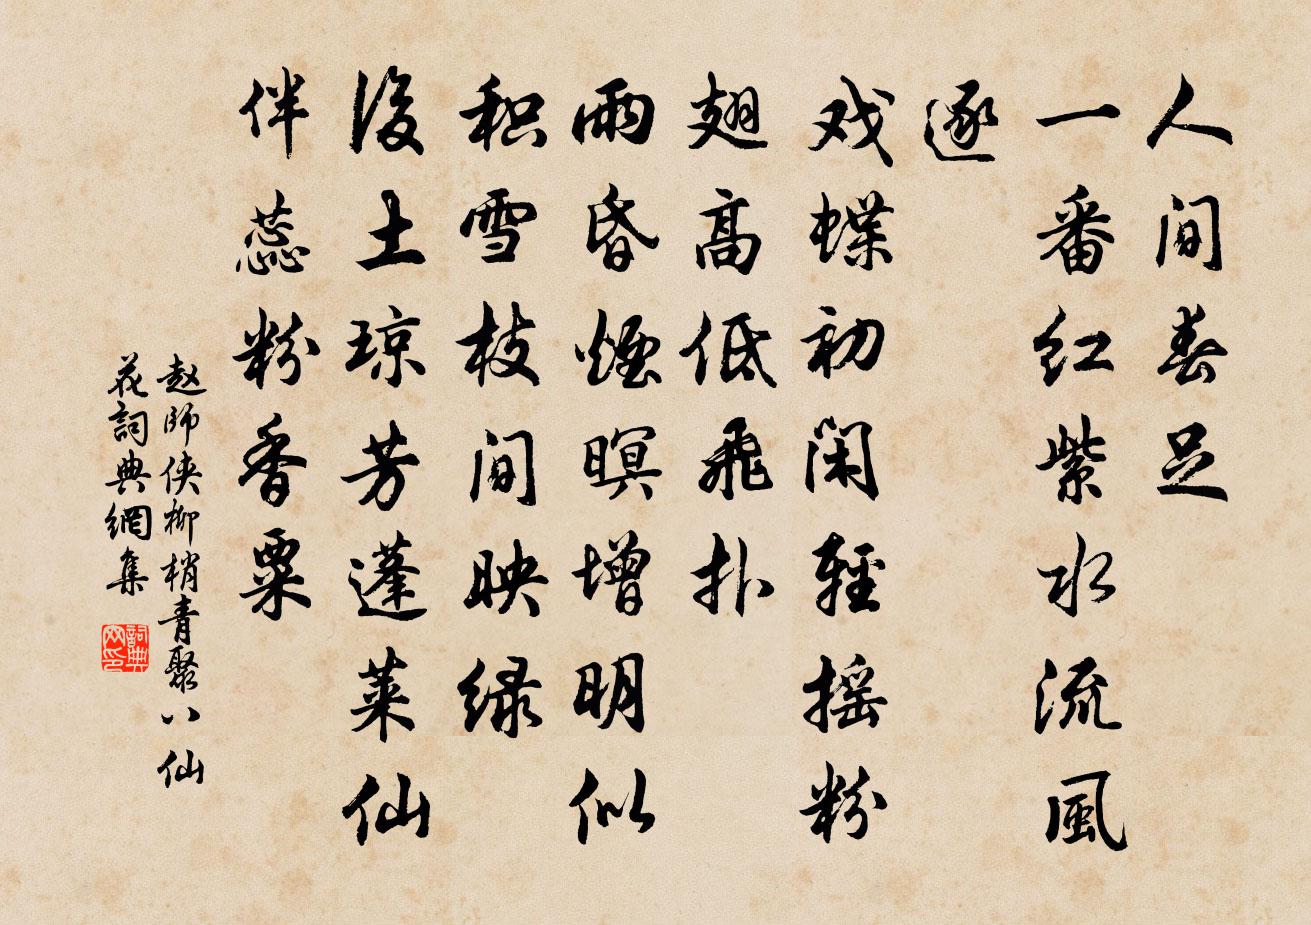 人间春足
一番红紫水流風
逐
戏蝶初闲輕摇粉
翅高低飛扑
雨昏煙暝增明似
积雪枝间映绿
後土琼芳蓬莱仙
伴蕊粉香粟
赵師侠柳梢青聚八仙
花詞典網集
詞典网印